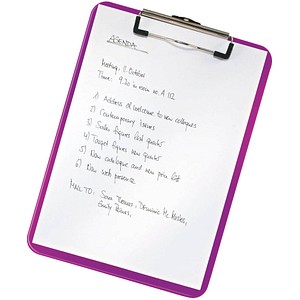 AGENDA
Meeting: 8 October
Time: 9.30 in room no. A 112
1) Address of welcome to new collegues
2) Contemporary Issues
3) Sales figures last quarter
4) Target figures new quarter
5) New catalogue and new price list
6) New web presence
MAIL TO: Sara Thomas,
Emily